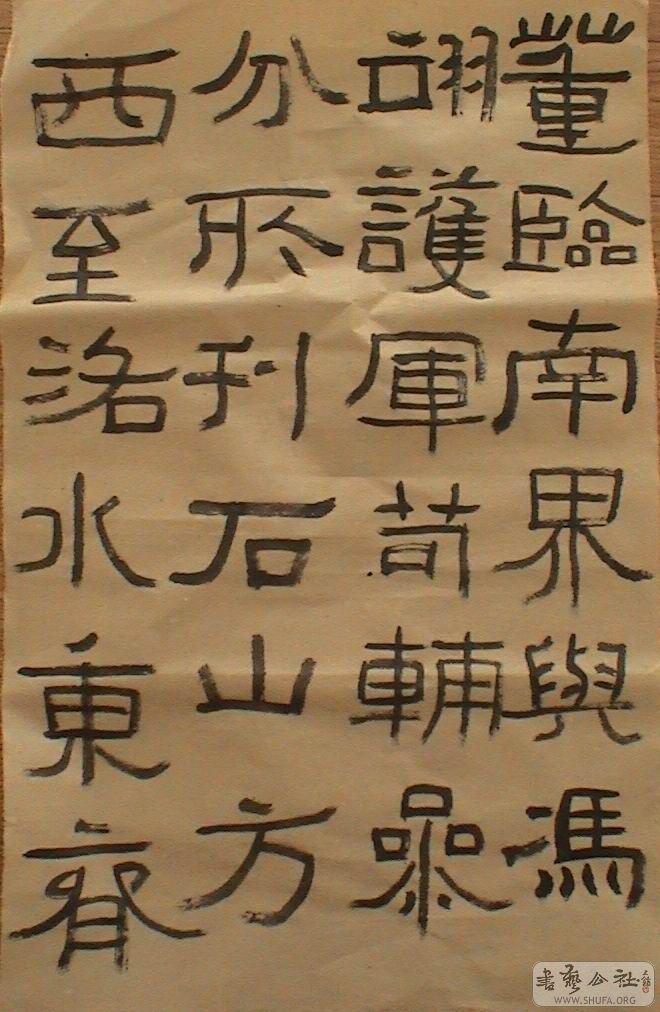 董臨南界與馮
翊護軍苟輔參
分所刊石山方
西至洛水東齊
書藝公社
WWW.SHUFA.ORG